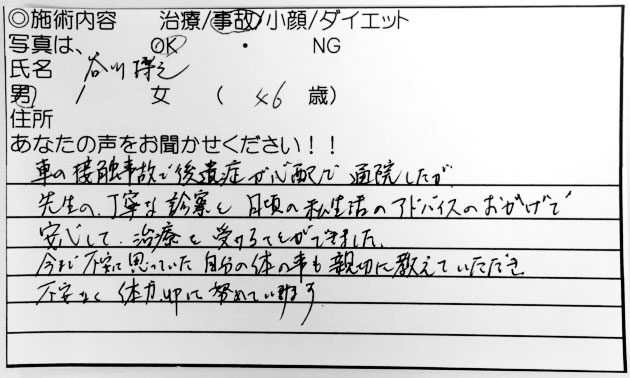 ◎施術内容 治療/事故/小顔/ダイエット
写真は、 OK ・ NG
氏名 谷川博之
男 / 女 ( 46 歳)
住所
あなたの声をお聞かせください！！
車の接触事故で後遺症が心配で通院したが
先生の、丁寧な診察と日頃の私生活のアドバイスのおかげで
安心して、治療を受けることができました。
今まで不安に思っていた自分の体の事も親切に教えていただき
不安なく体力upに努めています